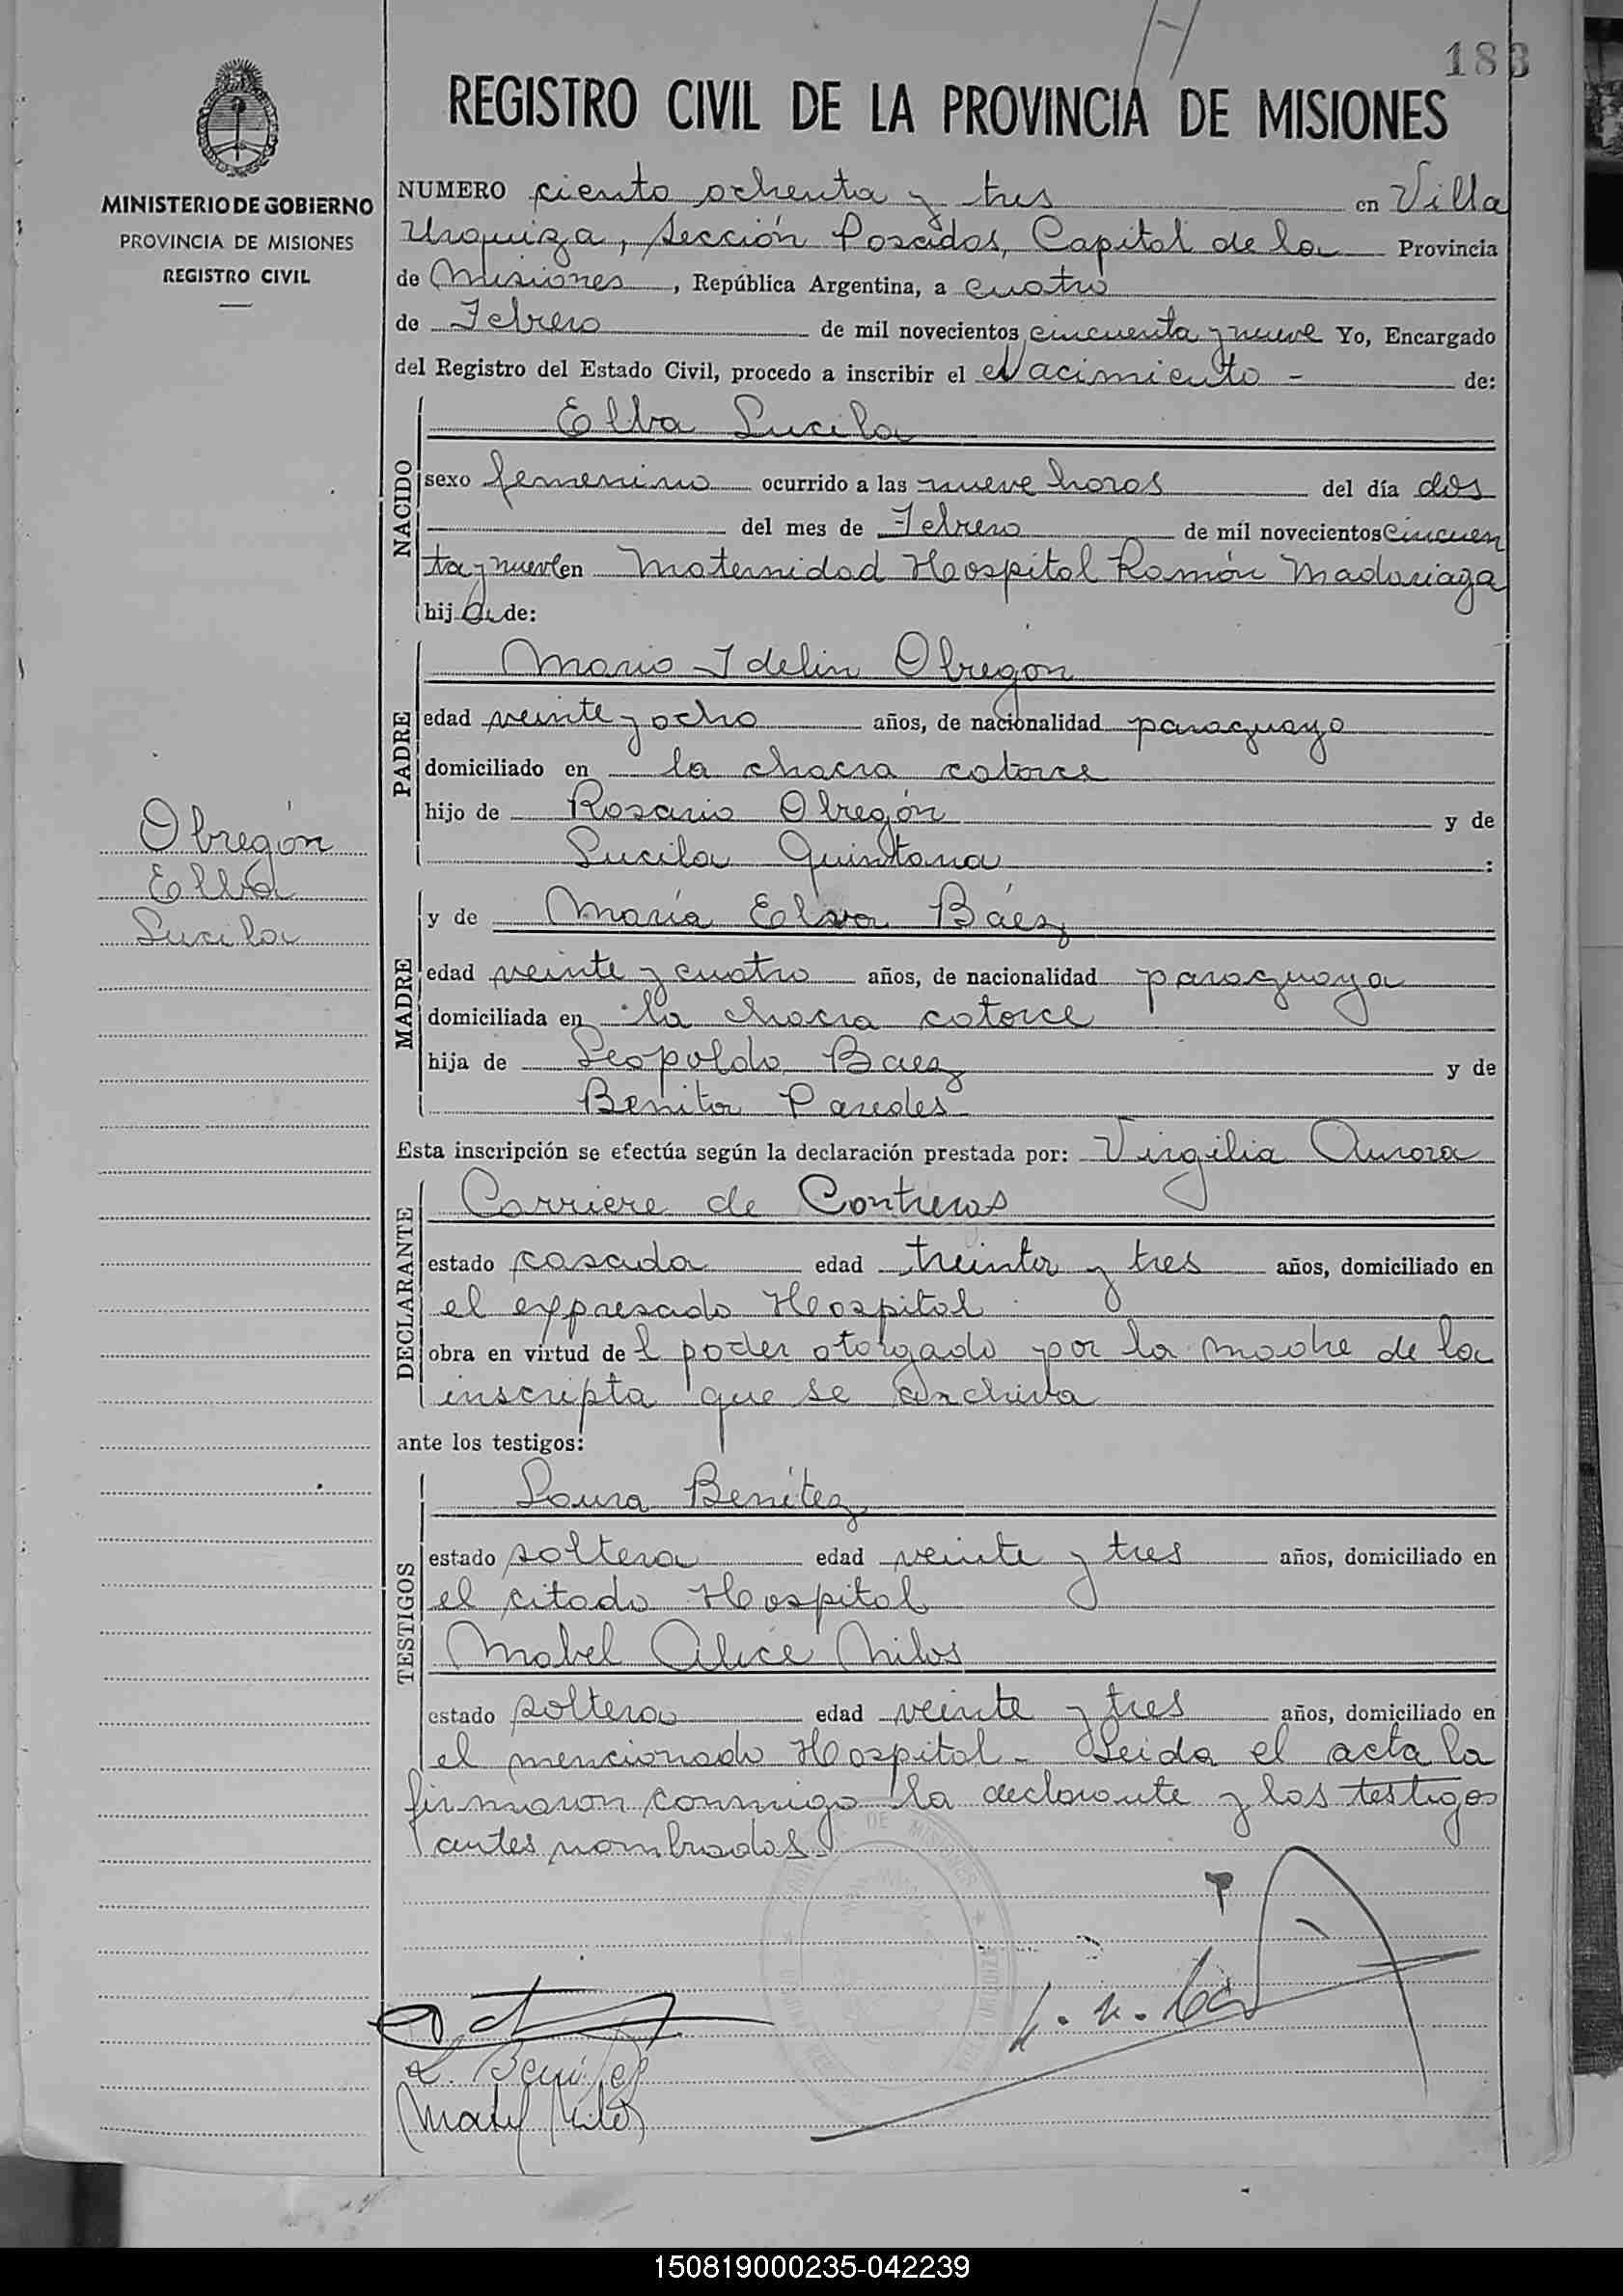 183
REGISTRO CIVIL DE LA PROVINCIA DE MISIONES
MINISTERIO DE GOBIERNO
PROVINCIA DE MISIONES
REGISTRO CIVIL
NUMERO ciento ochenta y tres en Villa
Urquiza, Sección Posadas, Capital de la Provincia
de Misiones, República Argentina, a cuatro
de Febrero de mil novecientos cincuenta y nueve Yo, Encargado
del Registro del Estado Civil, procedo a inscribir el Nacimiento - de:
NACIDO
Elba Lucila
sexo femenino ocurrido a las nueve horas del día dos
del mes de Febrero de mil novecientos cincuen
ta y nueve en Maternidad Hospital Ramón Madariaga
hija de:
PADRE
Mario Idelin Obregón
edad veinte y ocho años, de nacionalidad paraguayo
domiciliado en la chacra catorce
hijo de Rosario Obregón y de
Lucila Quintana :
Obregón
Elba
Lucila
MADRE
y de María Elva Báez
edad veinte y cuatro años, de nacionalidad paraguaya
domiciliada en la chacra catorce
hija de Leopoldo Baez y de
Benita Paredes
Esta inscripción se efectúa según la declaración prestada por: Virgilia Aurora
DECLARANTE
Carriere de Contreras
estado casada edad treinta y tres años, domiciliado en
el expresado Hospital
obra en virtud del poder otorgado por la madre de la
inscripta que se archiva
ante los testigos:
TESTIGOS
Laura Benítez
estado soltera edad veinte y tres años, domiciliado en
el citado Hospital
Mabel Alice Milos
estado soltera edad veinte y tres años, domiciliado en
el mencionado Hospital - Leida el acta la
firmaron conmigo la declarante y los testigos
antes nombrados.
L. Benítez
Mabel Milos
150819000235-042239